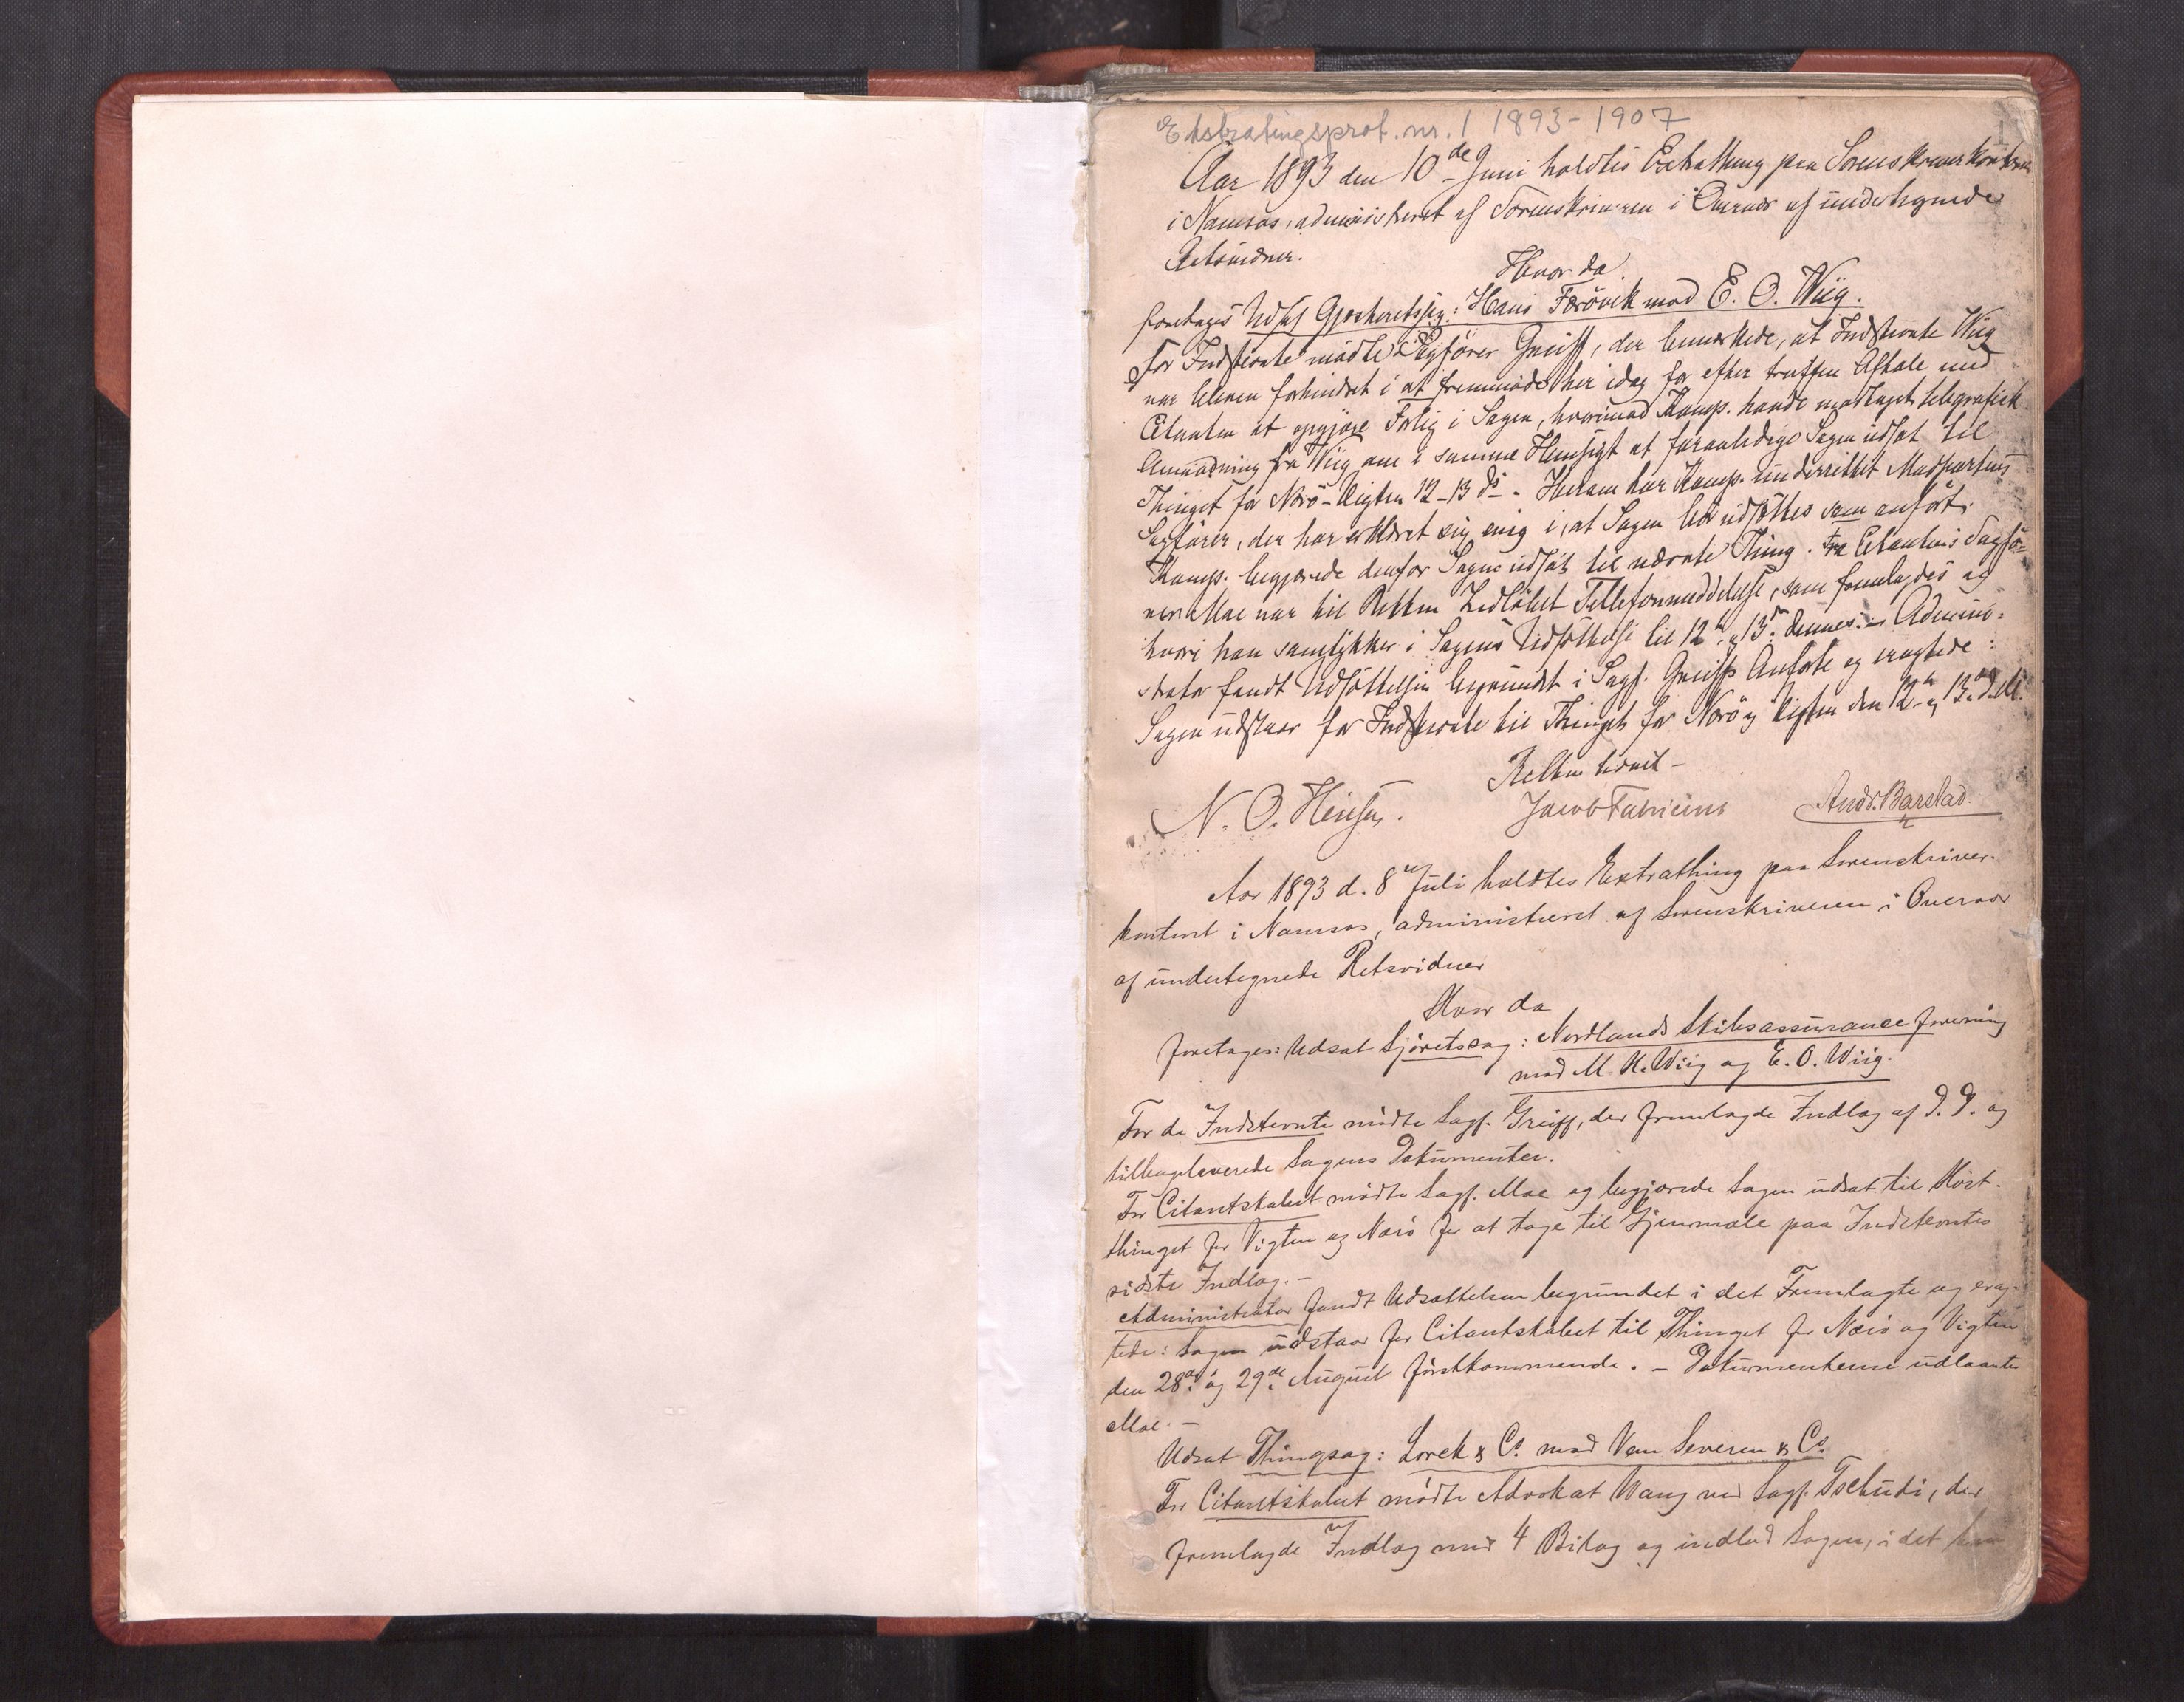 Ekstratingsprot. nr. 1 1893-1907
1
Aar 1893 den 10de Juni holdtes Extrathing paa Sorenskriverkontoret
i Namsos, administreret af Sorenskriveren i Overvær af undertegnede
Retsvidner.
Hvor da
foretages Udsat Gjesteretssag: Hans Farövik mod E. O. Wiig.
For Indstevnte mödte Sagförer Greiff, der bemærkede, at Indstevnte Wiig
var bleven forhindret i at fremmöde her idag for efter truffen Aftale med
Citanten at opgjöre Forlig i Sagen, hvorimod Komp. havde modtaget telegrafisk
Anmodning fra Wiig om i samme Hensigt at foranledige Sagen udsat til
Thinget for Nærö-Vigten 12-13 ds. Herom har Komp. underrettet Modpartens
Sagförer, der har erklæret sig enig i, at Sagen bör udsættes som anfört.
Komp. begjærede derfor Sagen udsat til nævnte Thing. Fra Citantens Sagfö-
rer Moe var til Retten indlöbet Tellefonmeddelelse, som fremlagdes og
hvori han samtykker i Sagens Udsættelse til 12te og 13de dennes. – Admini-
strator fandt Udsættelsen begrundet i Sagf. Greiffs Anförte og eragtede:
Sagen udstaar for Indstevnte til Thinget for Nærö og Vigten den 12te og 13de d.M.
Retten hævet –
N. O. Hensen. Jacob Fabricius Andr. Barstad.
Aar 1893 d. 8de Juli holdtes Extrathing paa Sorenskriver-
kontoret i Namsos, administreret af Sorenskriveren i Overvær
af undertegnede Retsvidner
Hvor da
foretages: Udsat Sjöretssag: Nordlands Skibsassuranceforening
mod M. H. Wiig og E. O. Wiig.
For de Indstevnte mödte Sagf. Greiff, der fremlagde Indlæg af D. D. og
tilbageleverede Sagens Dokumenter.
For Citantskabet mödte Sagf. Moe og begjærede Sagen udsat til Höst-
thinget for Vigten og Nærö for at tage til Gjenmæle paa Indstevntes
sidste Indlæg. –
Administrator fandt Udsættelsen begrundet i det Fremlagte og erag-
tede: Sagen udstaar for Citantskabet til Thinget for Nærö og Vigten
den 28de og 29de August förstkommende. – Dokumenterne udlaantes
Moe. –
Udsat Thingsag: Lorck & Co. mod Van Severen & Co.
For Citantskabet mödte Advokat Wang ved Sagf. Tschudi, der
fremlagde Indlæg med 4 Bilag og indlod Sagen, i det han